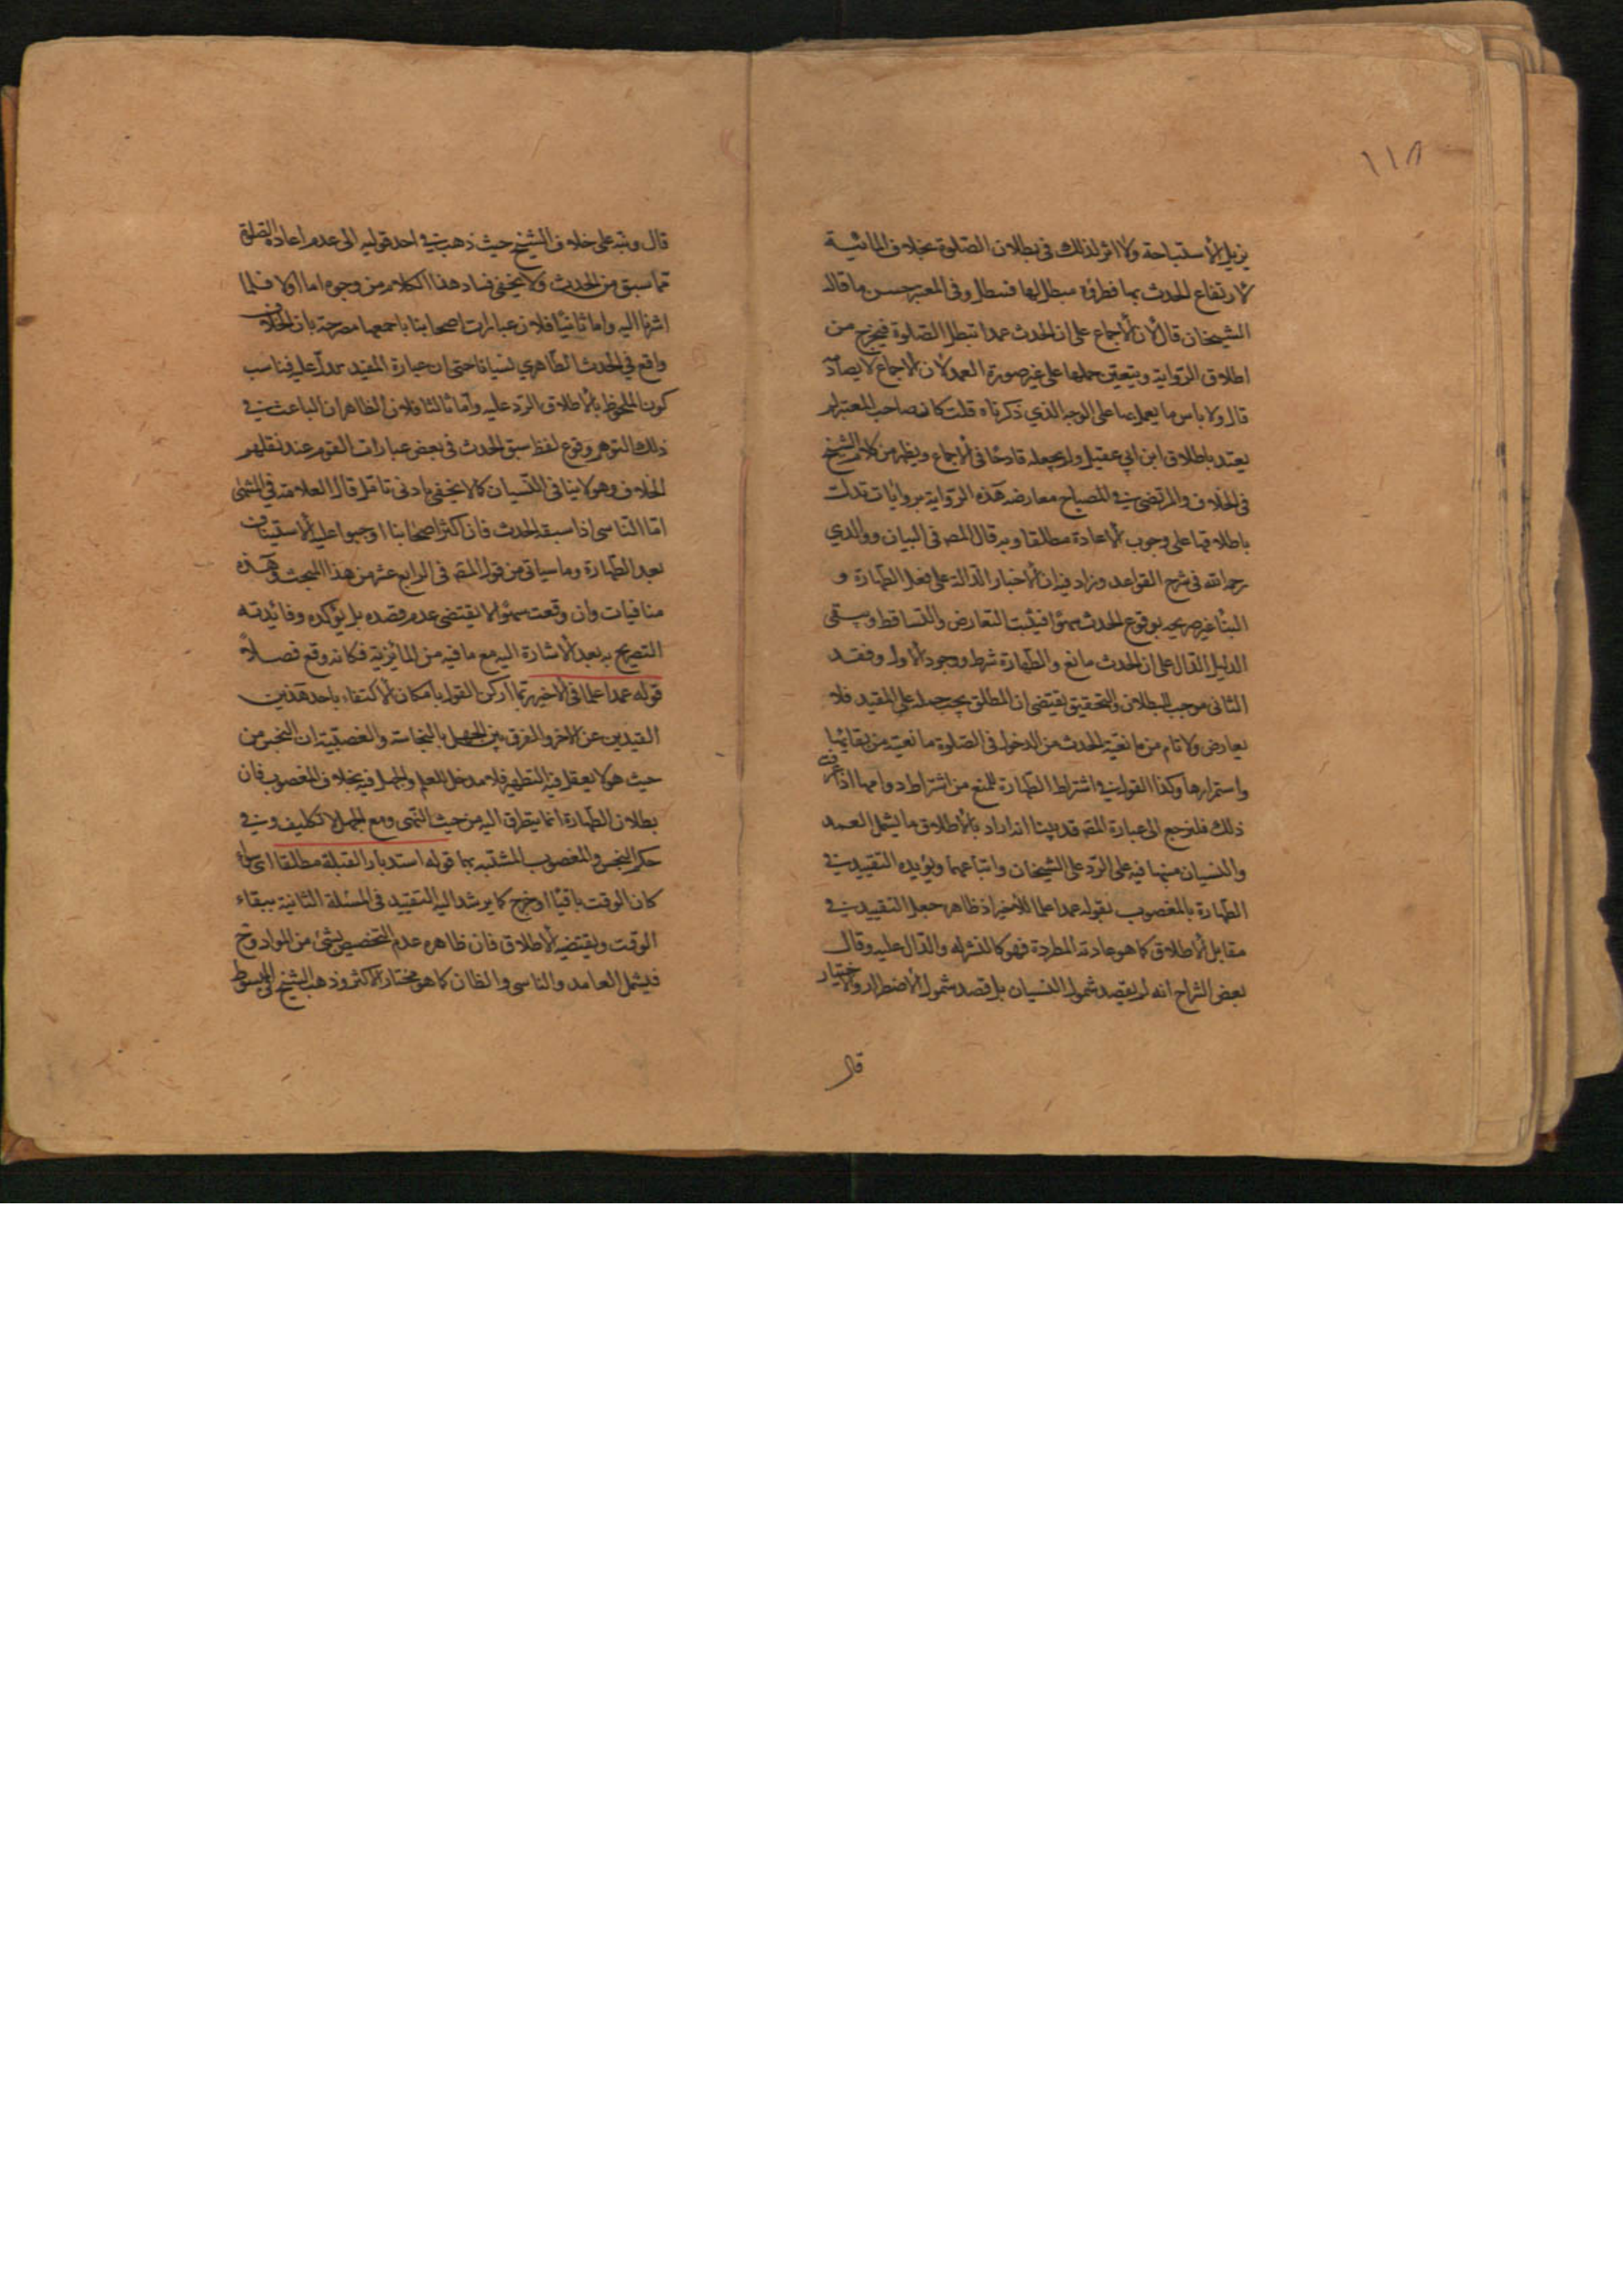 ١١٨
يزيل الاستباحة ولا اثر لذلك فى بطلان الصلوة بخلاف المائية
لارتفاع الحدث بها فطرؤه مبطل لها فتبطل وفى المعتبر حسن ما قاله
الشيخان قال لان الاجماع على ان الحدث عمدا تبطل الصلوة فيخرج من
اطلاق الرواية ويتعين حملها على غير صورة العمد لان الاجماع لا يصادّ
قال ولا باس بما يعمل بها على الوجه الذي ذكرناه قلت كان صاحب المعتبر لم
يعتد باطلاق ابن ابي عقيل ولم يجعله قادحًا فى الاجماع ويظهر من كلام الشيخ
فى الخلاف والمرتضى في المصباح معارضة هذه الرّواية بروايات تدلّ
باطلاقها على وجوب الاعادة مطلقا وبه قال المص فى البيان ووالدي
رحمه الله فى شرح القواعد وزاد فيه ان الاخبار الدالة على فعل الطهارة و
البنا غير صريحه بوقوع الحدث سهوًا فيثبت التعارض والتساقط ويبقى
الدليل الدال على ان الحدث مانع والطهارة شرط ووجود الاول وفقد
الثانى موجب للبطلان والتحقيق يقتضى ان المطلق يجب حمله على المقيد فلا
يعارض ولا تام من مانعية الحدث من الدخول فى الصلوة مانعيته من بقائها
واستمرارها وكذا القول في اشتراط الطهارة للمنع من اشتراط دوامها اذا عرفت
ذلك فلنرجع الى عبارة المص قد بينا انه اراد بالاطلاق ما يشمل العمد
والنسيان منبها فيه على الرّد على الشيخان واتباعهما ويؤيده التقييد في
الطهارة بالمغصوب بقوله عمدا علما للاخير اذ ظاهر جعل التقييد في
مقابل الاطلاق كما هو عادته المطردة فهو كالنشر له والدال عليه وقال
بعض الشراح انه لم يقصد شمول النسيان بل قصد شمول الاضطرار والاختيار
قال
قال ونبه على خلاف الشيخ حيث ذهب في احد قوليه الى عدم اعادة الصلوة
مما سبق من الحدث ولا يخفى فساد هذا الكلام من وجوه اما اولا فلما
اشرنا اليه واما ثانيًا فلان عبارات اصحابنا باجمعها مصرحة بان الخلاف
واقع في الحدث الطاهري نسيانا حتى ان عبارة المفيد تدلّ عليه فيناسب
كون الملحوظ بالاطلاق الرّد عليه وامّا ثالثا فلان الظاهر ان الباعث في
ذلك التوهم وقوع لفظ سبق الحدث فى بعض عبارات القوم عند نقلهم
الخلاف وهو لا ينافى النسيان كما لا يخفى بادنى تامّل قال العلامة في المنتهى
امّا الناسى اذا سبقه الحدث فان اكثر اصحابنا اوجبوا عليه الاستيناف
بعد الطهارة وما سياتى من قول المص فى الرابع عشر من هذا المبحث وهذه
منافيات وان وقعت سهوًا لا يقتضى عدم قصده بل يؤكده وفائدته
التصريح به بعد الاشارة اليه مع ما فيه من المائزية فكانه وقع فصلاً
قوله عمدا علما فى الاخير ربما ادركن القول بامكان الاكتفاء باحد هذين
القيدين عن الاخر والفرق بين الجهل بالنجاسة والغصبية ان النجس من
حيث هو لا يعقل فيه التطهير فلا مدخل للعلم والجهل فيه بخلاف المغصوب فان
بطلان الطهارة انما يتطرق اليه من حيث النّهى ومع الجهل لا تكليف وفي
حكم النجس والمغصوب المشتبه بهما قوله استدبار القبلة مطلقا اى سواء
كان الوقت باقيًا او خرج كما يرشد اليه التقييد فى المسئلة الثانية ببقاء
الوقت ويقتضيه الاطلاق فان ظاهره عدم التخصيص بشئ من المواد وح
فيشمل العامد والناسى والظان كما هو مختار الاكثر وذهب الشيخ فى المبسوط